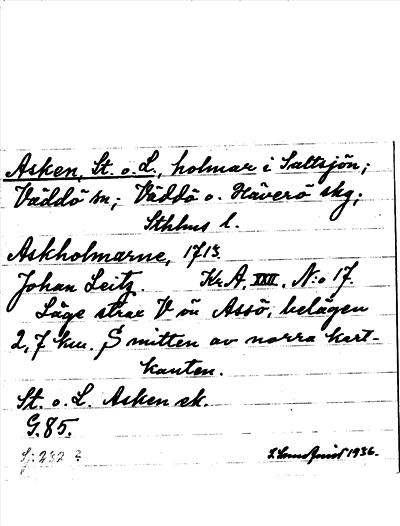 Asken, St. o. L., holmar i Saltsjön;
Väddö sn; Väddö o. Häverö skg;
Sthlms l.
Askholmarne, 1713.
Johan Leitz. Kr. A. XXII, N:o 17.
Läge strax V om Assö, belägen
2,7 km. S mitten av norra kart-
kanten.
St. o. L. Asken ek.
G. 85.
Sj: 232
1936.